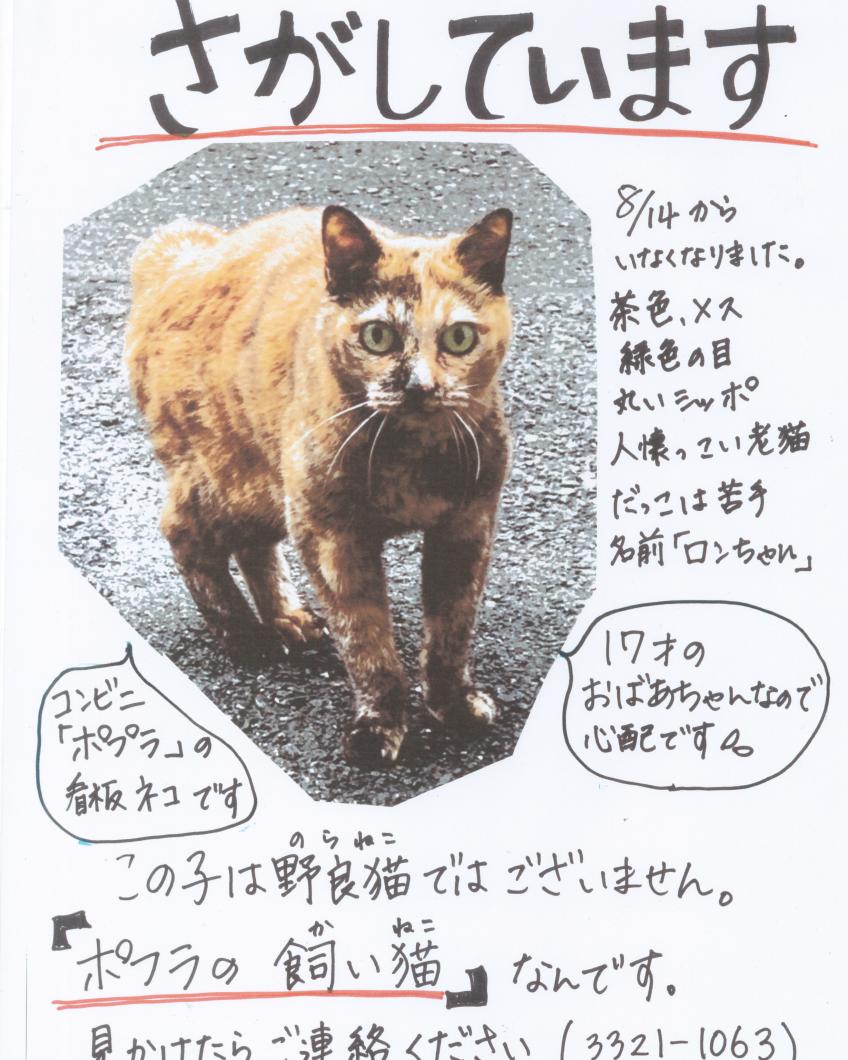 さがしています
8/14から
いなくなりました。
茶色、メス
緑色の目
丸いシッポ
人懐っこい老猫
だっこは苦手
名前「ロンちゃん」
17才の
おばあちゃんなので
心配です
コンビニ
「ポプラ」の
看板ネコです
のらねこ
この子は野良猫ではございません。
か ねこ
『ポプラの飼い猫』なんです。
見かけたらご連絡ください(3321-1063)